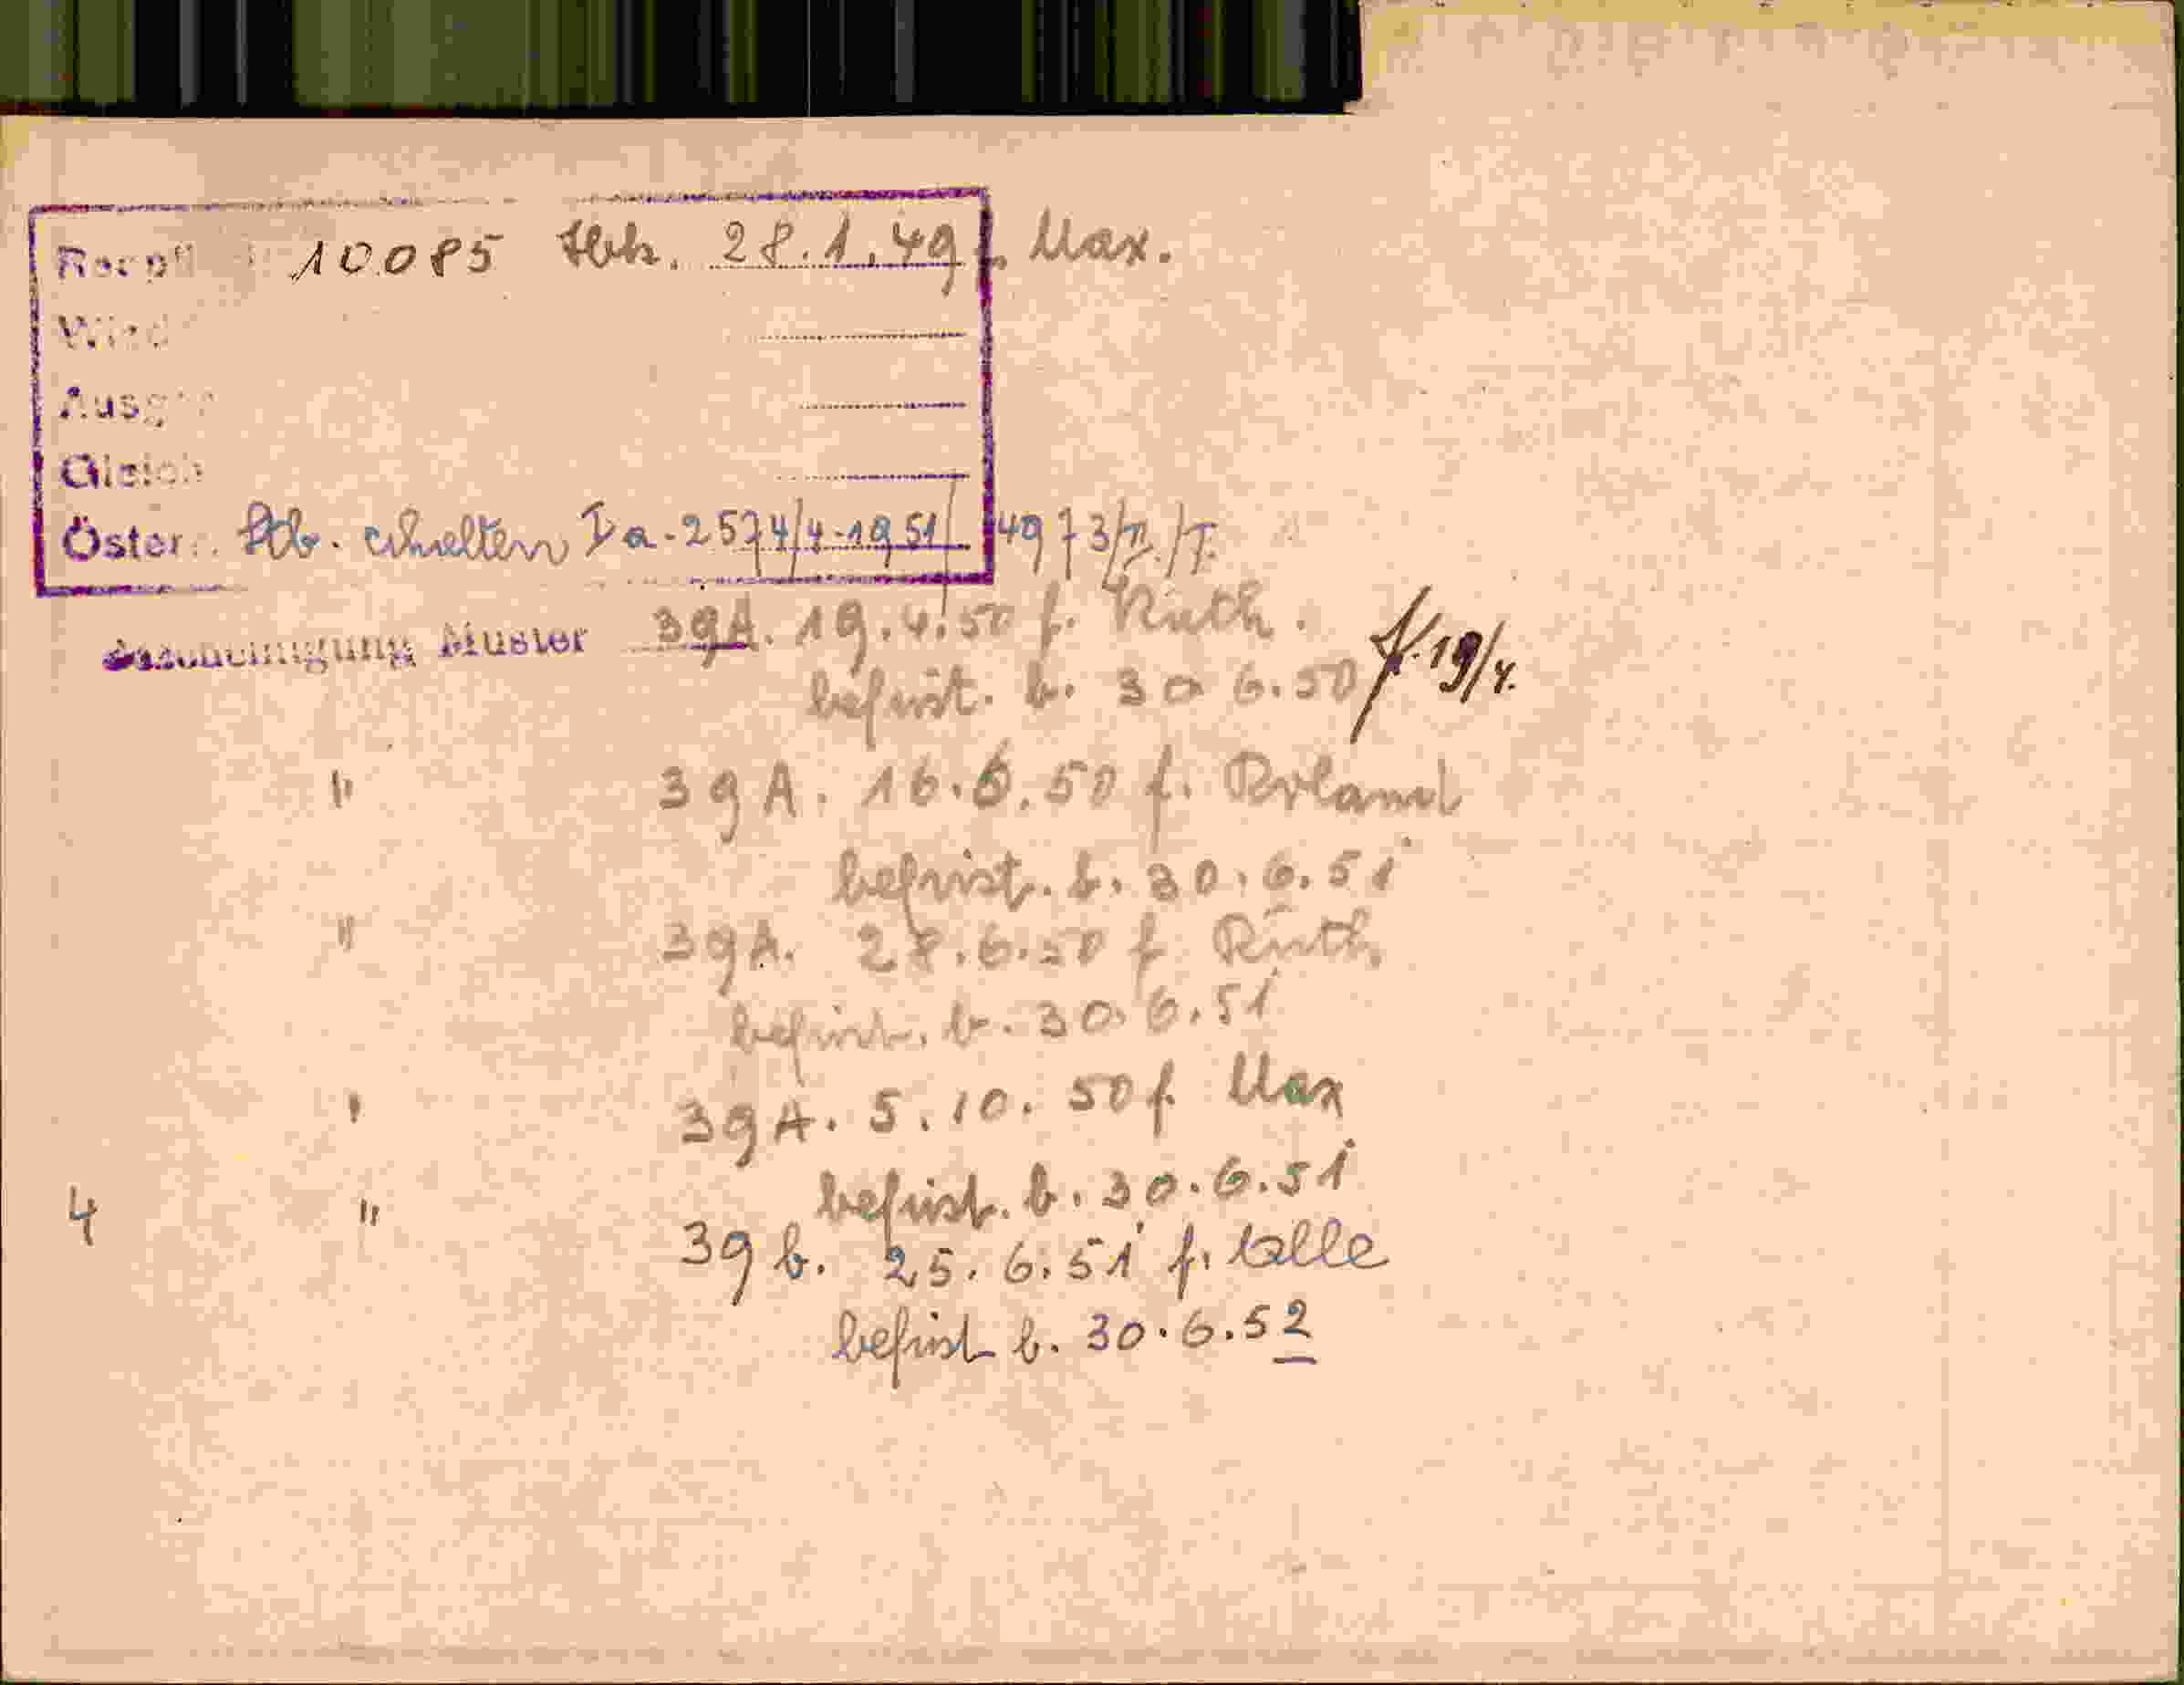 10085 Hbh. 28.1.49 f. Max.
Wied
Ausg
Gleich
Österr. Stb. erhalten Ia-2574/4-1951/ 4973/II./I.
Muster 39A. 19.4.50 f. Ruth.
befrist. b. 30 6.50 19/4.
" 39A. 16.6.50 f. Roland
befrist. b. 30.6.51
" 39A. 28.6.50 f Ruth,
befrist. b. 30.6.51
" 39A. 5.10.50 f. Max
befrist. b. 30.6.51
4 " 39b. 25.6.51 f. alle
befrist b. 30.6.52